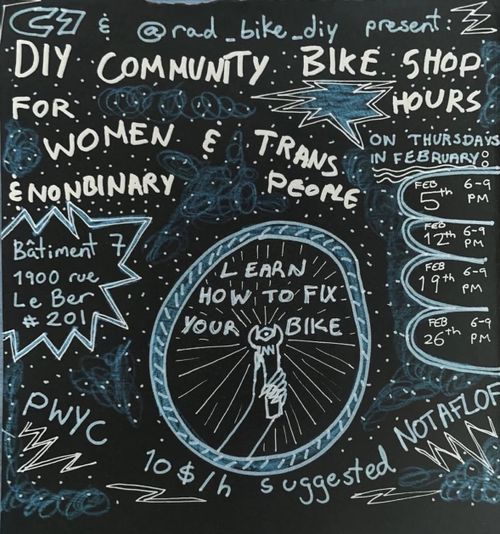 & @rad_bike_diy present:
DIY COMMUNITY BIKE SHOP
FOR HOURS
WOMEN & TRANS
& NONBINARY PEOPLE
ON THURSDAYS
IN FEBRUARY:
FEB 5th 6-9 PM
FEB 12th 6-9 PM
FEB 19th 6-9 PM
FEB 26th 6-9 PM
Bâtiment 7
1900 rue
Le Ber
# 201
LEARN
HOW TO FIX
YOUR BIKE
PWYC
NOTAFLOF
10$/h suggested